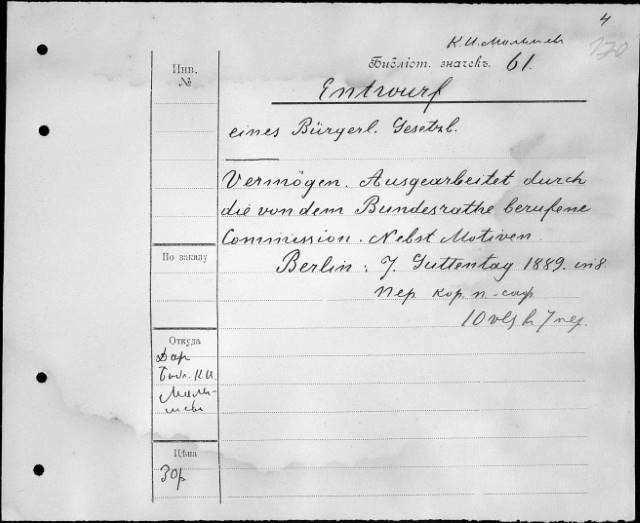 4
К. И. Малышев
120
Инв.
№
Библіот. значекъ. 61.
Entwurf
eines Bürgerl. Gesetzb.
Vermögen. Ausgearbeitet durch
die von dem Bundesrathe berufene
Commission. Nebst Motiven.
По заказу
Berlin: J. Guttentag 1889. in 8.
пер. кор. п.-саф.
10 vls в 7 пер.
Откуда
Дар
Библ. К.И.
Малы-
шева
Цѣна
30р